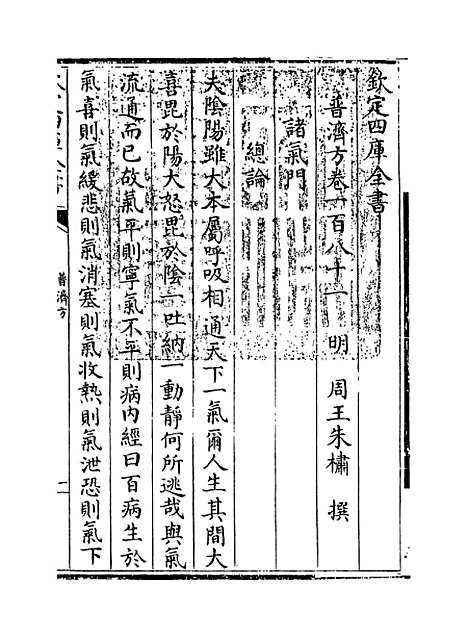 欽定四庫全書
普濟方卷一百八十一 明 周王朱橚 撰
諸氣門
總論
夫陰陽雖大本屬呼吸相通天下一氣爾人生其間大
喜毘於陽大怒毘於陰一吐納一動靜何所逃哉與氣
流通而已故氣平則寧氣不平則病內經曰百病生於
氣喜則氣緩悲則氣消塞則氣收熱則氣泄恐則氣下
普濟方